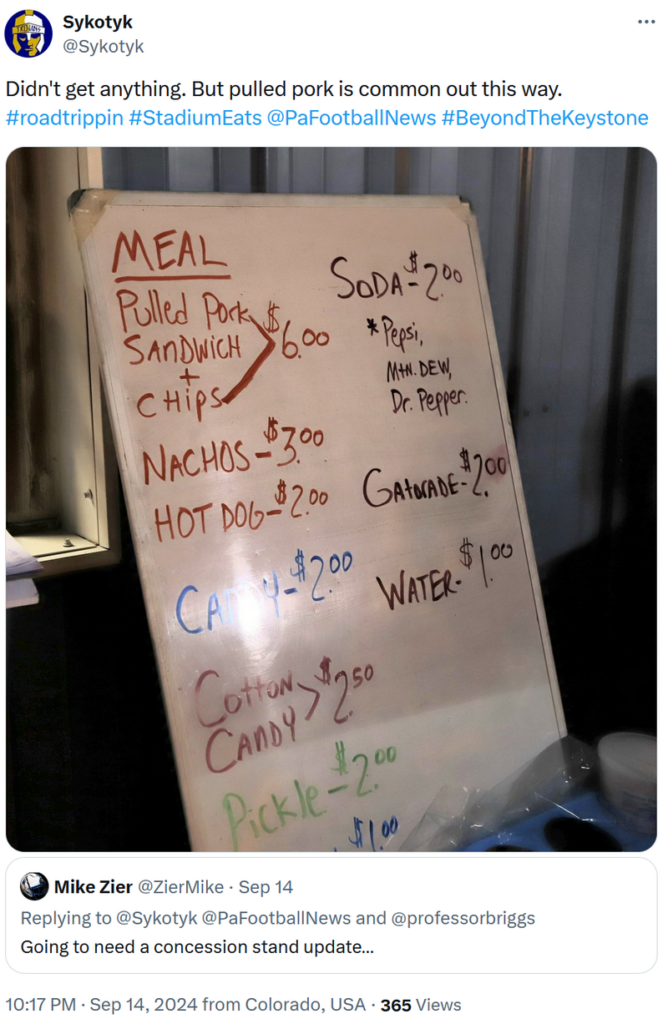 Sykotyk
@Sykotyk
Didn't get anything. But pulled pork is common out this way.
#roadtrippin #StadiumEats @PaFootballNews #BeyondTheKeystone
MEAL
Pulled Pork
SANDWICH
+
CHIPS
$6.00
NACHOS - $3.00
HOT DOG - $2.00
CANDY - $2.00
COTTON
CANDY
$2.50
Pickle - $2.00
$1.00
SODA - $2.00
*Pepsi,
MTN. DEW,
Dr. Pepper.
GATORADE - $2.00
WATER - $1.00
Mike Zier @ZierMike · Sep 14
Replying to @Sykotyk @PaFootballNews and @professorbriggs
Going to need a concession stand update...
10:17 PM · Sep 14, 2024 from Colorado, USA · 365 Views